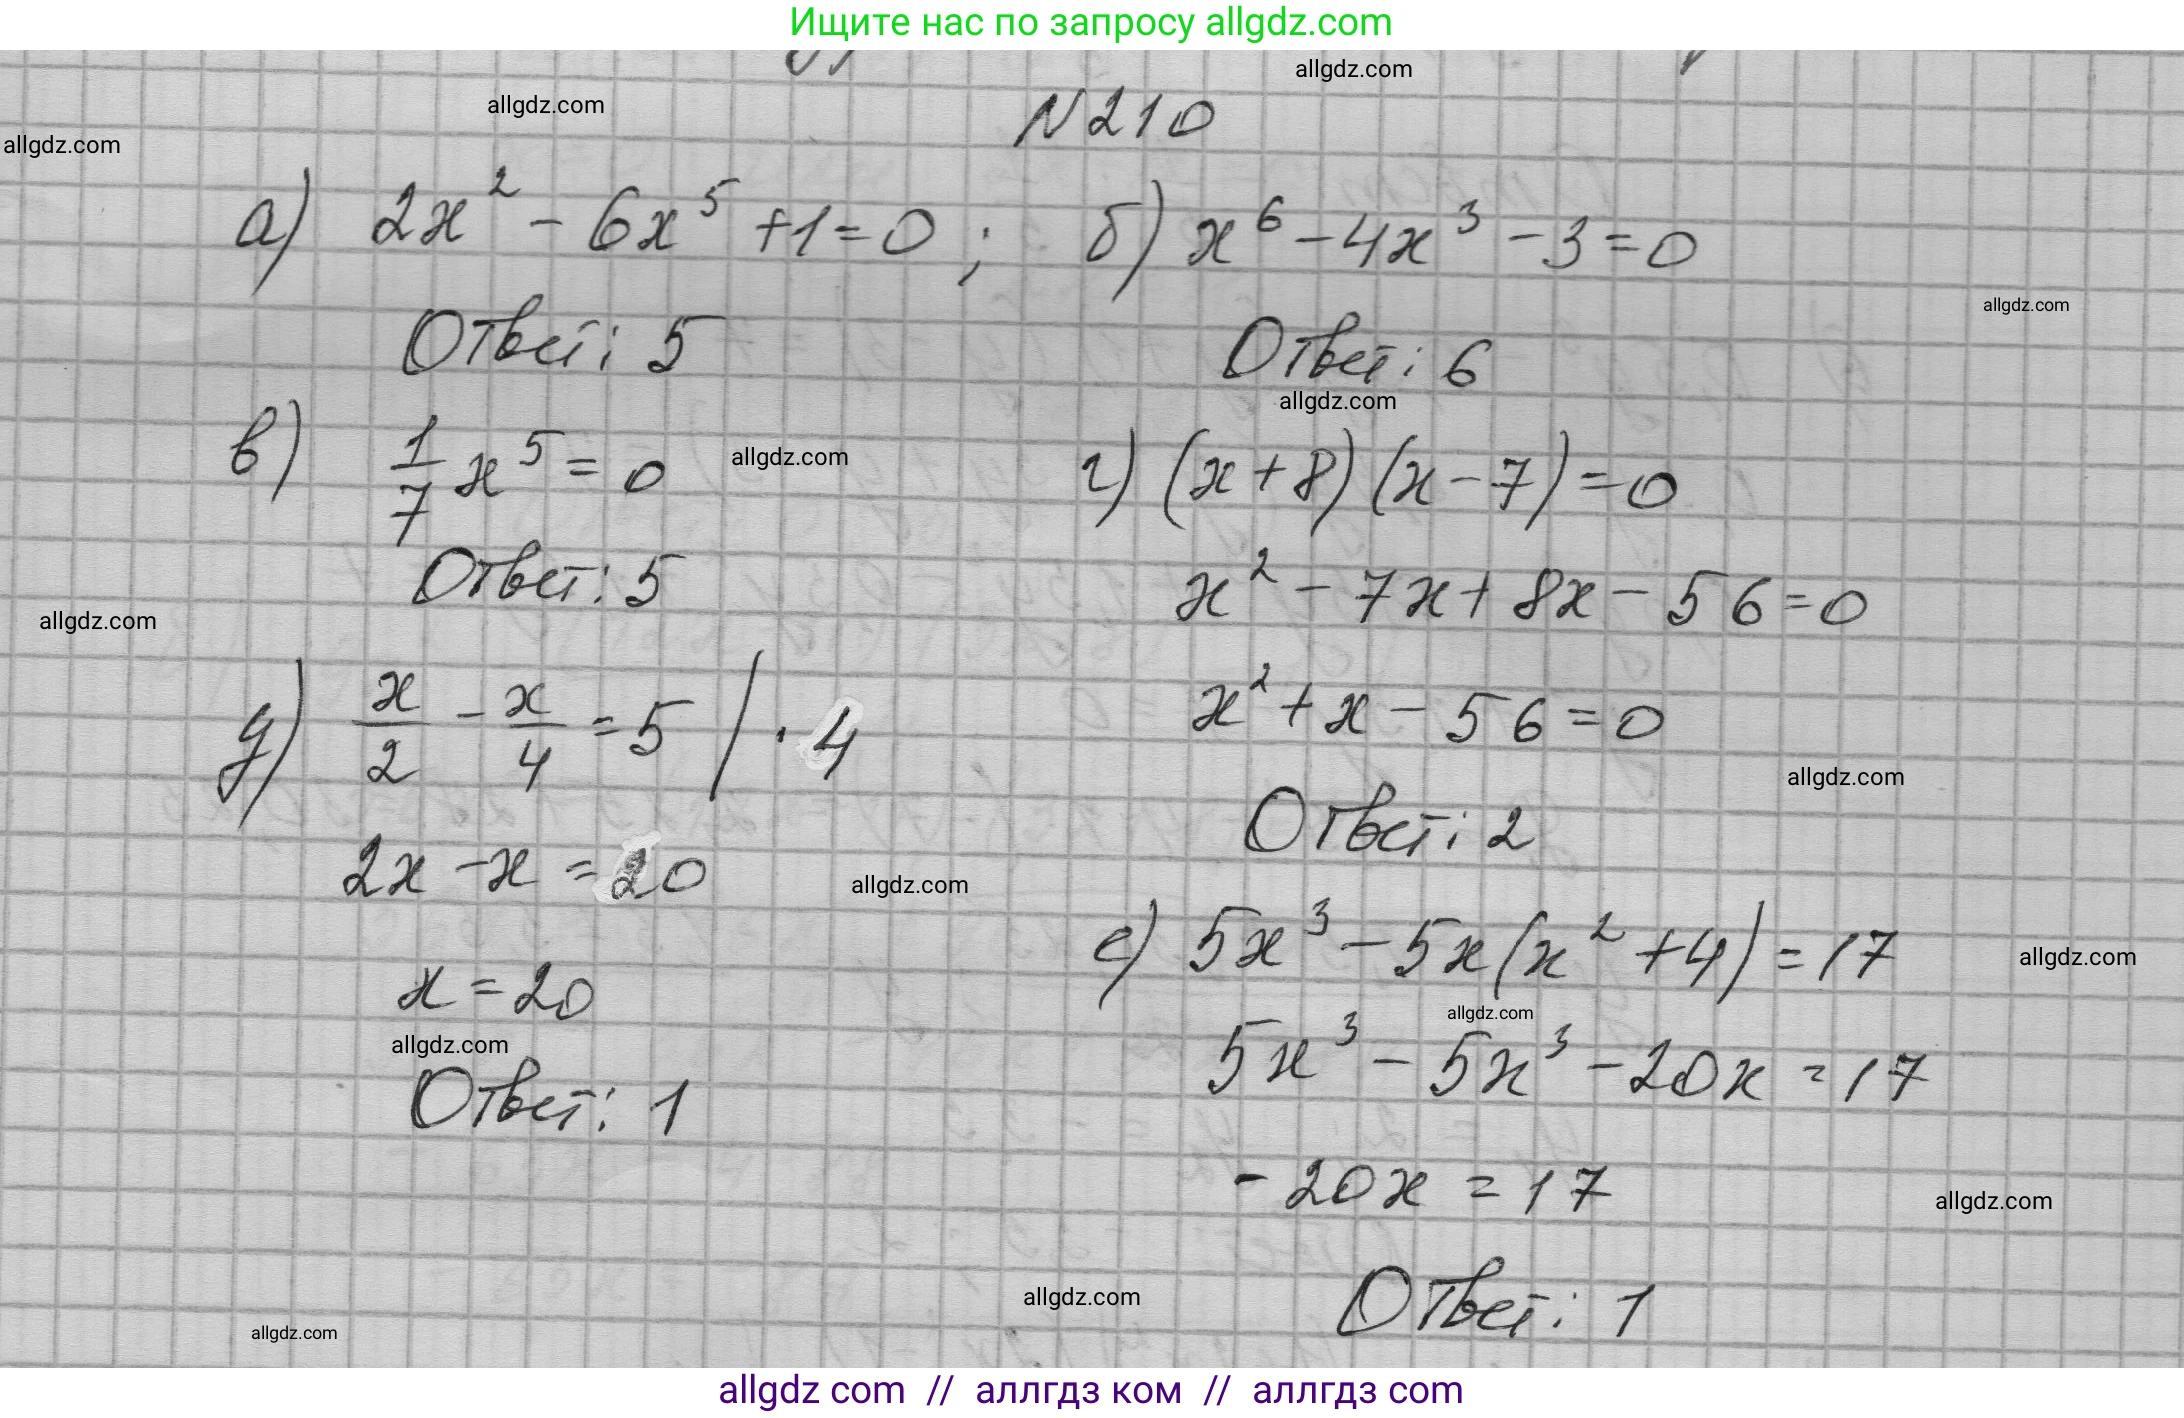 Ищите нас по запросу allgdz.com
allgdz.com
allgdz.com
allgdz.com
N210
а) 2x² - 6x⁵ + 1 = 0 ; б) x⁶ - 4x³ - 3 = 0
allgdz.com
Ответ: 5 Ответ: 6
allgdz.com
в) 1/7 x⁵ = 0 allgdz.com г) (x + 8) (x - 7) = 0
Ответ: 5 x² - 7x + 8x - 56 = 0
allgdz.com
д) x/2 - x/4 = 5 | · 4 x² + x - 56 = 0
allgdz.com
2x - x = 20 Ответ: 2
allgdz.com
е) 5x³ - 5x(x² + 4) = 17 allgdz.com
x = 20 allgdz.com
allgdz.com 5x³ - 5x³ - 20x = 17
Ответ: 1
-20x = 17 allgdz.com
allgdz.com Ответ: 1
allgdz.com
allgdz com // аллгдз ком // аллгдз com